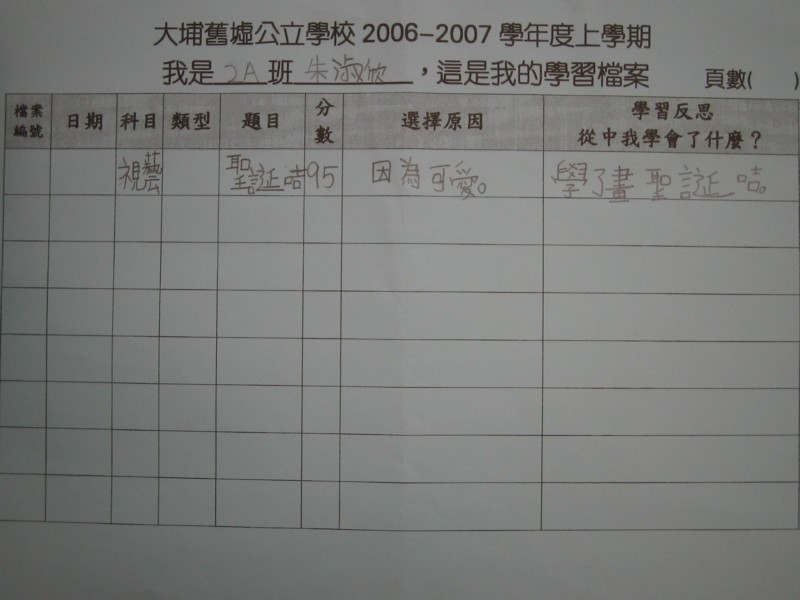 大埔舊墟公立學校 2006-2007 學年度上學期
我是 2A 班 朱淑欣 ，這是我的學習檔案 頁數( )
檔案編號 日期 科目 類型 題目 分數 選擇原因 學習反思 從中我學會了什麼？
視藝 聖誕咭 95 因為可愛。 學了畫聖誕咭。